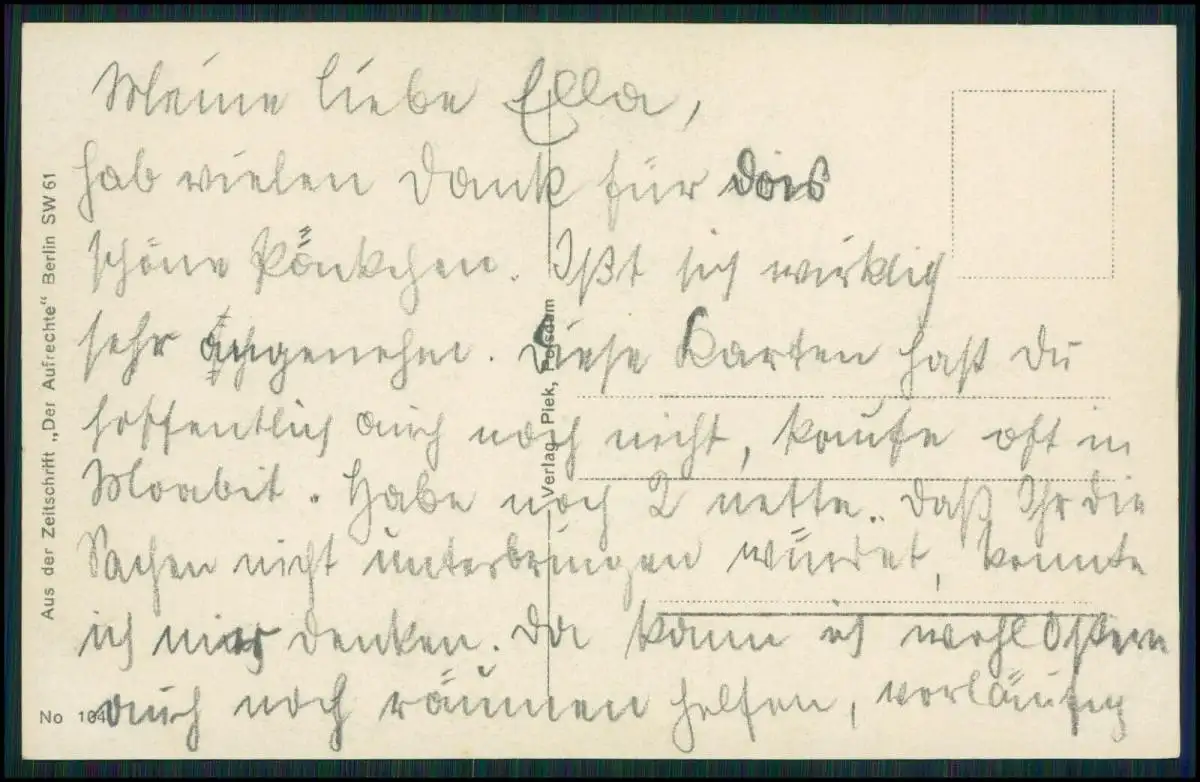 Meine liebe Ella,
hab vielen Dank für das
schöne Päckchen. Ißt sich wirklich
sehr angenehm. Diese Karten hast Du
hoffentlich auch noch nicht, kaufe oft in
Moabit. Habe noch 2 nette. Daß Ihr die
Sachen nicht unterbringen würdet, konnte
ich mir denken. Da kann ich wohl Ostern
auch noch räumen helfen, vorläufig
Aus der Zeitschrift „Der Aufrechte“ Berlin SW 61
Verlag Piek, Potsdam
No 104